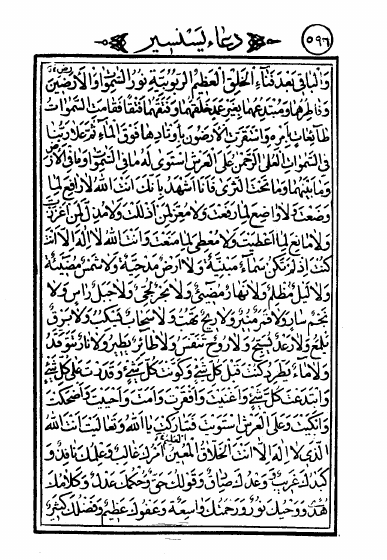 ٥٩٦ دعاء يستشير
وَالْبَاقِي بَعْدَ فَنَاءِ الْخَلْقِ الْعَظِيمُ الرُّبُوبِيَّةِ نُورُ السَّمٰوَاتِ وَالْاَرَضِينَ
وَفَاطِرُهُمَا وَمُبْتَدِعُهُمَا بِغَيْرِ عَمَدٍ خَلَقَهُمَا وَفَتَقَهُمَا فَتْقًا فَقَامَتِ السَّمٰوَاتُ
طَائِعَاتٍ بِاَمْرِهِ وَاسْتَقَرَّتِ الْاَرَضُونَ بِاَوْتَادِهَا فَوْقَ الْمَاءِ ثُمَّ عَلَا رَبُّنَا
فِي السَّمٰوَاتِ الْعُلَى الرَّحْمٰنُ عَلَى الْعَرْشِ اسْتَوٰى لَهُ مَا فِي السَّمٰوَاتِ وَمَا فِي الْاَرْضِ
وَمَا بَيْنَهُمَا وَمَا تَحْتَ الثَّرٰى فَاَنَا اَشْهَدُ بِاَنَّكَ اَنْتَ اللهُ لَا رَافِعَ لِمَا
وَضَعْتَ وَلَا وَاضِعَ لِمَا رَفَعْتَ وَلَا مُعِزَّ لِمَنْ اَذْلَلْتَ وَلَا مُذِلَّ لِمَنْ اَعْزَزْتَ
وَلَا مَانِعَ لِمَا اَعْطَيْتَ وَلَا مُعْطِيَ لِمَا مَنَعْتَ وَاَنْتَ اللهُ لَا اِلٰهَ اِلَّا اَنْتَ
كُنْتَ اِذْ لَمْ تَكُنْ سَمَاءٌ مَبْنِيَّةٌ وَلَا اَرْضٌ مَدْحِيَّةٌ وَلَا شَمْسٌ مُضِيئَةٌ
وَلَا لَيْلٌ مُظْلِمٌ وَلَا نَهَارٌ مُضِيءٌ وَلَا بَحْرٌ لُجِّيٌّ وَلَا جَبَلٌ رَاسٍ وَلَا
نَجْمٌ سَارٍ وَلَا قَمَرٌ مُنِيرٌ وَلَا رِيحٌ تَهُبُّ وَلَا سَحَابٌ يَسْكُبُ وَلَا بَرْقٌ
يَلْمَعُ وَلَا رَعْدٌ يُسَبِّحُ وَلَا رُوحٌ تَنَفَّسُ وَلَا طَائِرٌ يَطِيرُ وَلَا نَارٌ تَتَوَقَّدُ
وَلَا مَاءٌ يَطَّرِدُ كُنْتَ قَبْلَ كُلِّ شَيْءٍ وَكَوَّنْتَ كُلَّ شَيْءٍ وَقَدَرْتَ عَلٰى كُلِّ شَيْءٍ
وَابْتَدَعْتَ كُلَّ شَيْءٍ وَاَغْنَيْتَ وَاَفْقَرْتَ وَاَمَتَّ وَاَحْيَيْتَ وَاَضْحَكْتَ
وَاَبْكَيْتَ وَعَلَى الْعَرْشِ اسْتَوَيْتَ فَتَبَارَكْتَ يَا اَللهُ وَتَعَالَيْتَ اَنْتَ اللهُ
الَّذِي لَا اِلٰهَ اِلَّا اَنْتَ الْخَلَّاقُ الْمُعِينُ اَمْرُكَ غَالِبٌ وَعِلْمُكَ نَافِذٌ وَ
كَيْدُكَ غَرِيبٌ وَوَعْدُكَ صَادِقٌ وَقَوْلُكَ حَقٌّ وَحُكْمُكَ عَدْلٌ وَكَلَامُكَ
هُدًى وَوَحْيُكَ نُورٌ وَرَحْمَتُكَ وَاسِعَةٌ وَعَفْوُكَ عَظِيمٌ وَفَضْلُكَ كَثِيرٌ